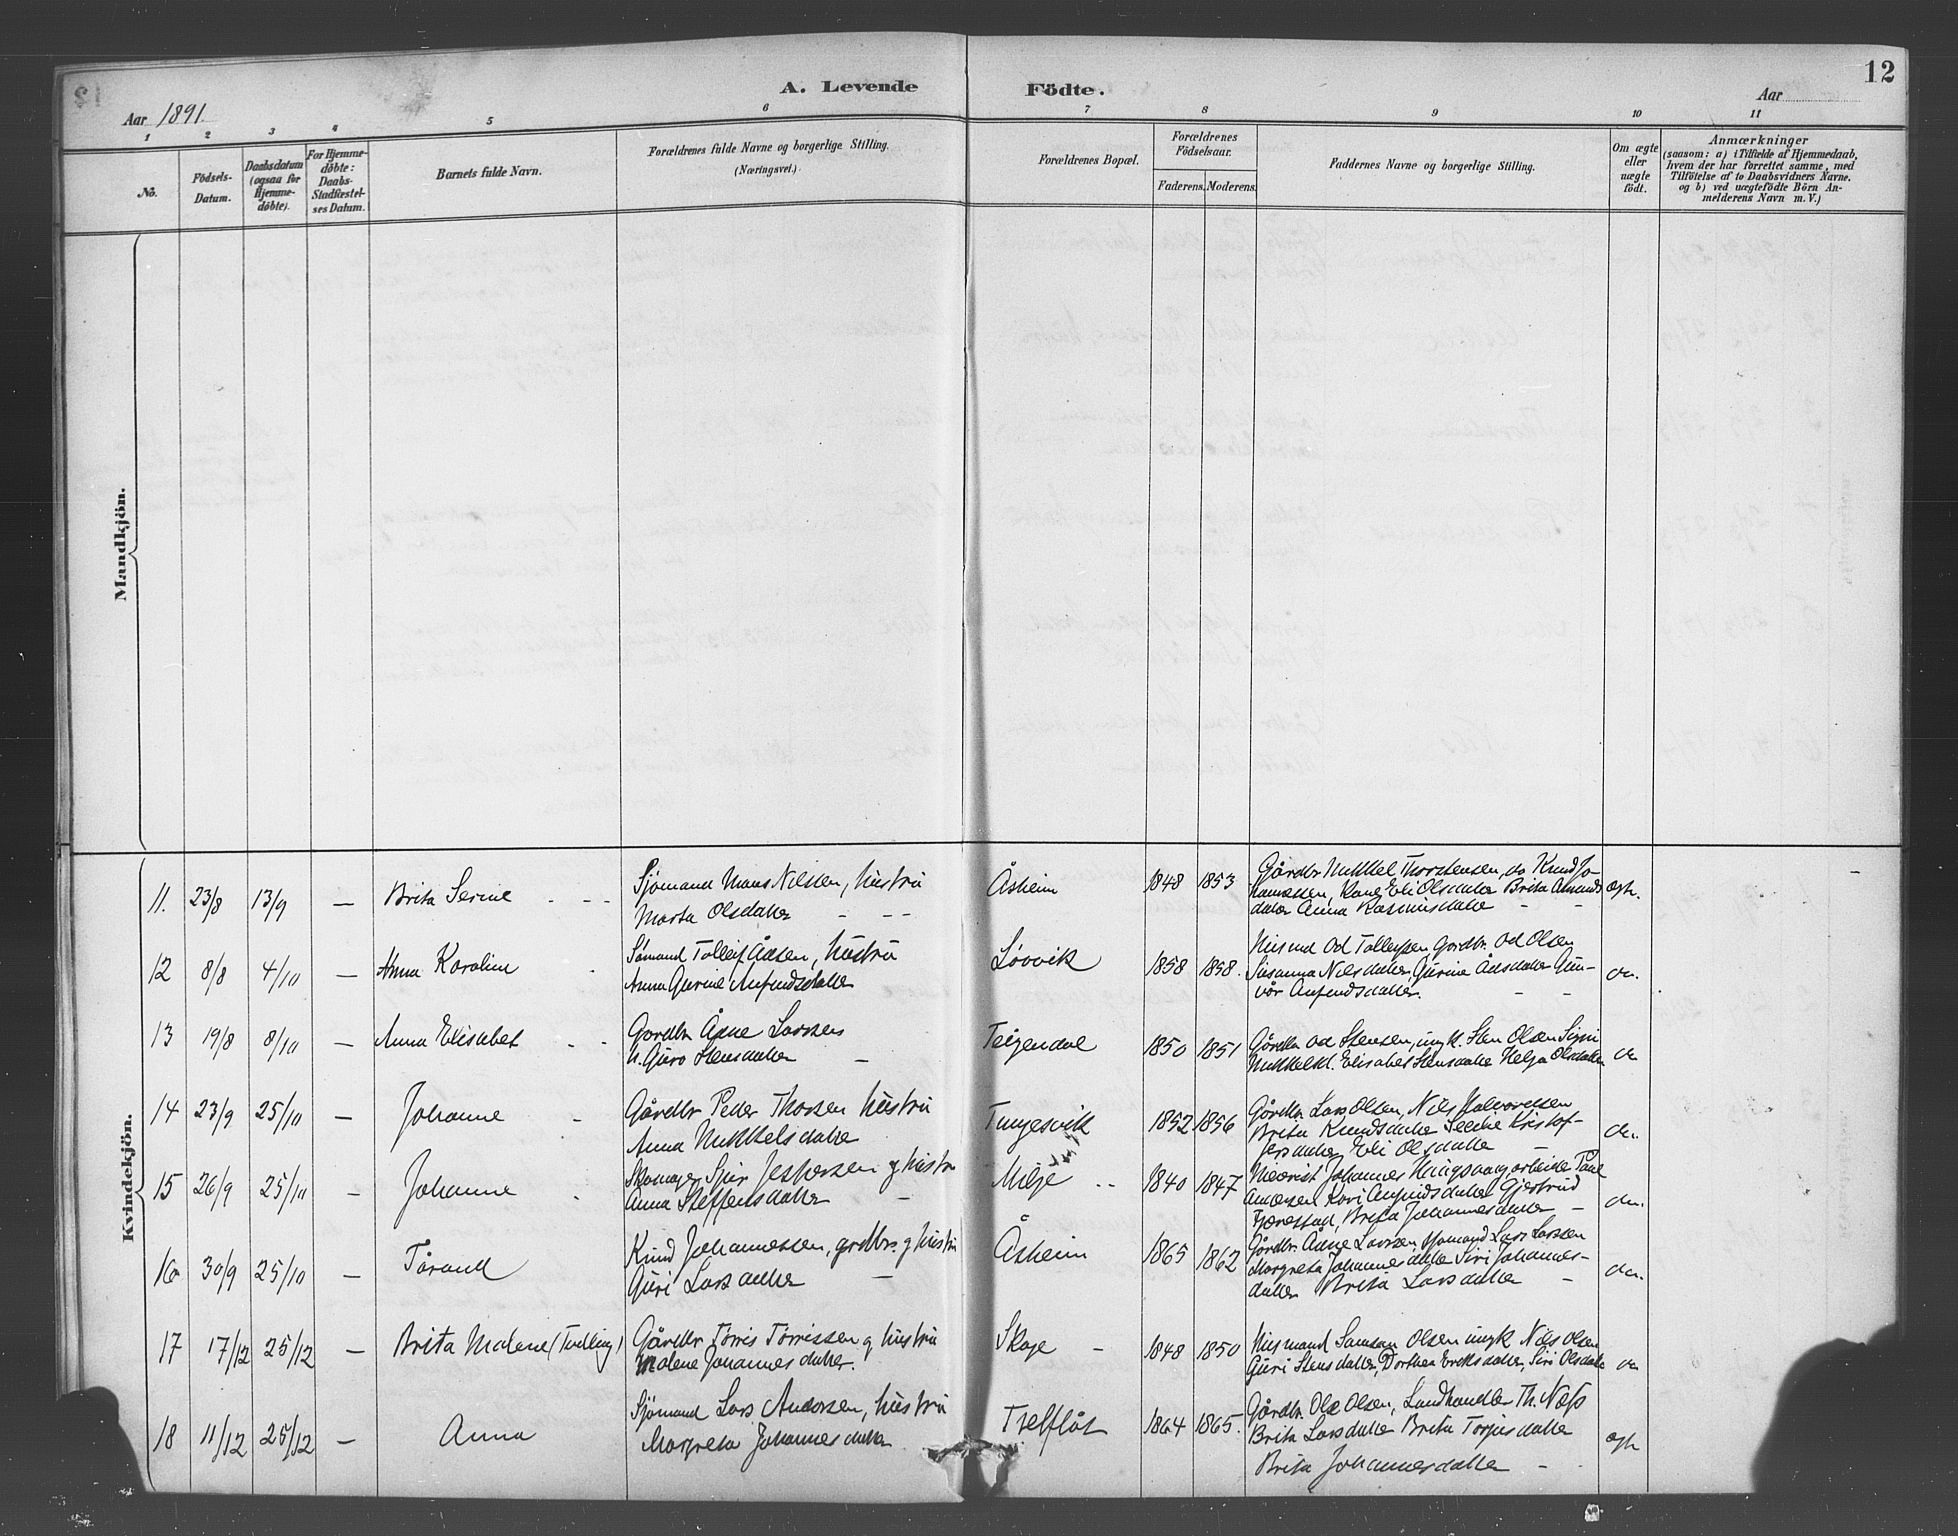 A. Levende Födte.
12
Aar 1891.
Aar
1 2 3 4 5 6 7 8 9 10 11
No.
Födsels-
Datum.
Daabsdatum
(ogsaa for
Hjemme-
döbte).
For Hjemme-
döbte:
Daabs-
Stadfæstel-
ses Datum.
Barnets fulde Navn.
Forældrenes fulde Navne og borgerlige Stilling.
(Næringsvei.)
Forældrenes Bopæl.
Forældrenes
Födselsaar.
Faderens. Moderens.
Faddernes Navne og borgerlige Stilling.
Om ægte
eller
uægte
födt.
Anmærkninger
(saasom: a) i Tilfælde af Hjemmedaab,
hvem der har forrettet samme, med
Tilföielse af to Daabsvidners Navne.
og b) ved uægtefödte Börn An-
melderens Navn m. V.)
Mandkjön.
Kvindekjön.
11. 23/8 13/9 — Brita Serine - - -
Sjømand Mons Nilssen, hustru
Marta Olsdatter - - -
Åsheim 1848 1853
Gårdbr Mikkel Thorstensen, do Knud Jo-
hannessen, Kone Eli Olsdatter Brita Amunds
datter Anna Rasmusdatter - -
ægte.
12 8/8 4/10 — Anna Karoline -
Sømand Tolleif Ådsen, hustru
Anna Gurine Anfindsdatter
Løvvik 1858 1858.
Husmd Od Tolleifsen Gardbr. Od Olsen
Susanna Nilsdatter, Gurine Ådsdatter Gun-
vør Anfindsdatter. - -
do.
13 19/8 8/10 — Anna Elisabet - -
Gardbr Ådne Larssen
h. Guro Stensdatter -
Teigendal 1850 1851
Gårdbr Od Stensen, ungk. Sten Olsen Signi
Mikkelsd. Elisabet Stensdatter Helga Olsdatter
do
14 23/9 25/10 — Johanne -
Gårdbr Peder Thorsen hustru
Anna Mikkelsdatter
Tungesvik 1852 1856
Gårdbr. Lars Olsen, Nils Halvorssen
Brita Knudsdatter Secilie Kristof-
fersdatter Eli Olsdatter -
do.
15 26/9 25/10 — Johanne -
Skomager Sjur Jespersen og hustru
Anna Steffensdatter -
Milje - - 1840 1847
Johannes Haugsvang, arbeider Paul
Andersen Kari Anfindsdatter Gjertrud
Fjærestad, Brita Johannesdatter -
do.
16 30/9 25/10 — Tårand
Knud Johannessen, grdbr. og hustru
Guri Larsdatter -
Åsheim 1865 1862
Gårdbr. Ådne Larssen sjømand Lars Larssen
Margreta Johannesdatter Siri Johannes-
datter Brita Larsdatter -
do.
17 17/12 25/12 — Brita Malene (Tvilling)
Gårdbr Tørris Tørrissen og hustru
Malene Johannesdatter.
Skåje - 1848 1850
Husmand Samson Olsen ungk Nils Olsen
Guri Stensdatter, Dorthea Eriksdatter, Siri Olsdatter
do
18 11/12 25/12 — Anna
Sjømand Lars Andersen, hustru
Margreta Johannesdatter
Treflåt 1864 1865.
Gårdbr. Ole Olsen, Landhandler Th. Næss
Brita Larsdatter Brita Torjusdatter
Brita Johannesdatter -
ægte